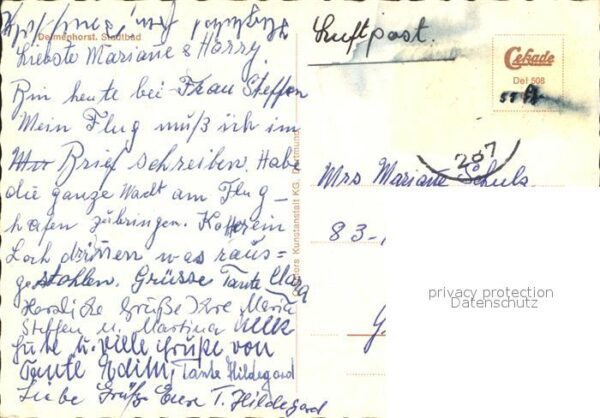 Delmenhorst. Stadtbad
Liebste Mariane & Harry.
Bin heute bei Frau Steffen
Mein Flug muß ich im
Brief schreiben. Habe
die ganze Nacht am Flug-
hafen zubringen. Koffer ein
Loch drinnen was raus=
gestohlen. Grüsse Tante Clara
Herzliche Grüße Ihre Marta
Steffen u. Martina
Gute u. viele Grüße von
Tante Edith, Tante Hildegard
Liebe Grüße Eure T. Hildegard
Luftpost.
Cekade
Del 508
207
Mrs Mariane Schulz
83-
G
Kunstanstalt KG, Dortmund
privacy protection
Datenschutz